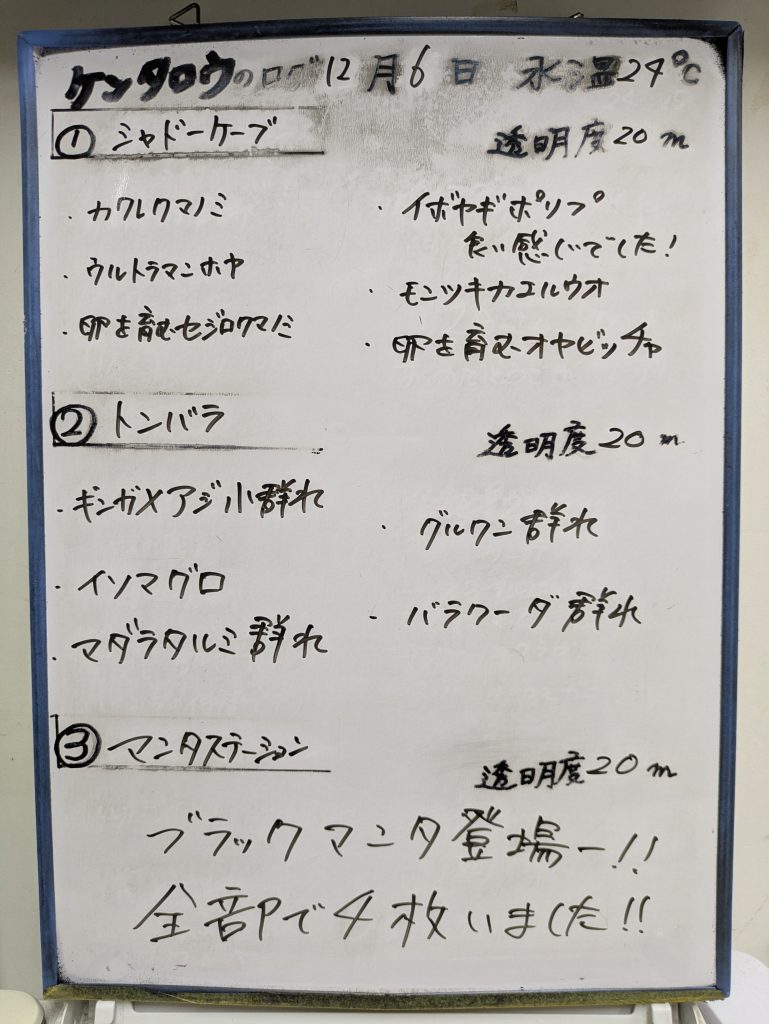 ケンタロウのログ 12月6日 水温24℃
① シャドーケーブ 透明度20m
・カクレクマノミ
・ウルトラマンホヤ
・卵を育むセジロクマノミ
・イボヤギポリプ
良い感じでした!
・モンツキカエルウオ
・卵を育むオヤビッチャ
② トンバラ 透明度20m
・ギンガメアジ小群れ
・イソマグロ
・マダラタルミ群れ
・グルクン群れ
・バラクーダ群れ
③ マンタステーション 透明度20m
ブラックマンタ登場ー!!
全部で4枚いました!!